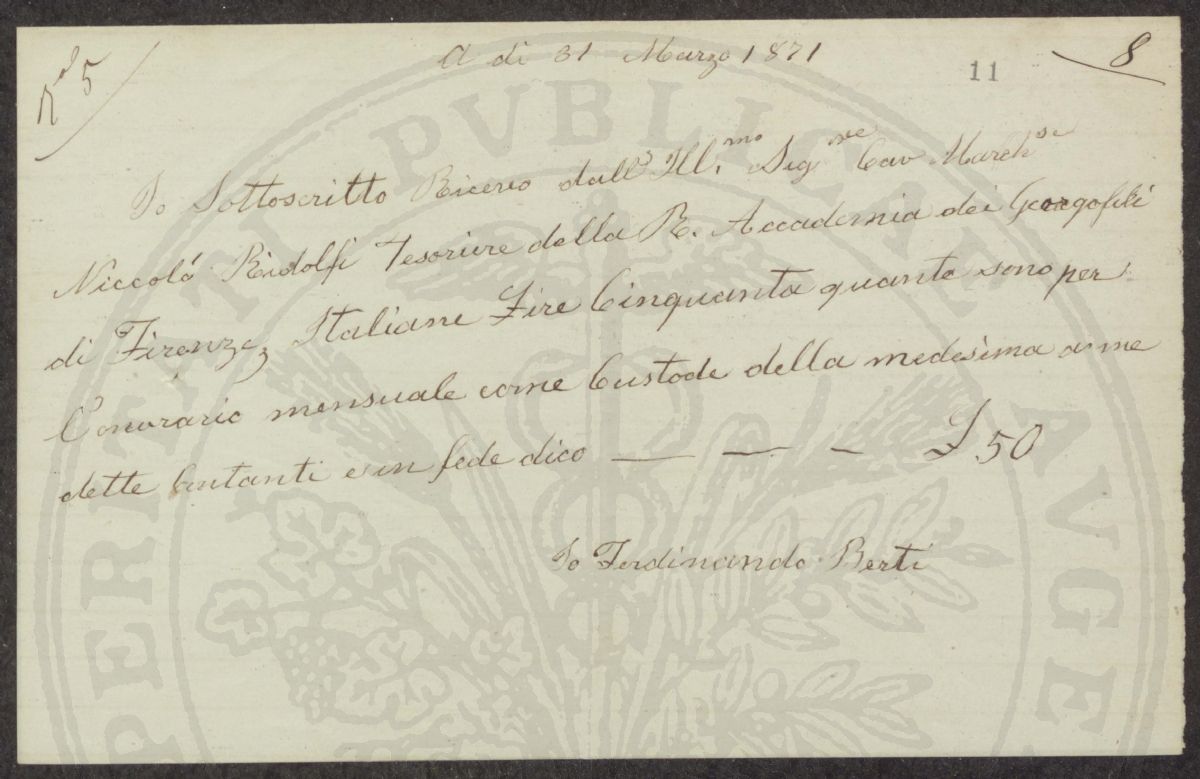 N.º 5
A di 31 Marzo 1871
11
8
Io Sottoscritto Ricevo dall' Ill.mo Sig.re Cav March.se
Niccoló Ridolfi Tesoriere della R. Accademia dei Georgofili
di Firenze, Italiane Lire Cinquanta quanto sono per
l'onorario mensuale come Custode della medesima a me
dette Contanti e in fede dico — — - £ 50
Io Ferdinando Berti
PERITATI PVBLICAE AVGE